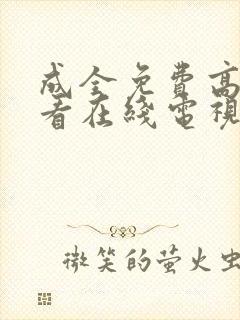 成全免費高
看在綫電視
微笑的萤火虫